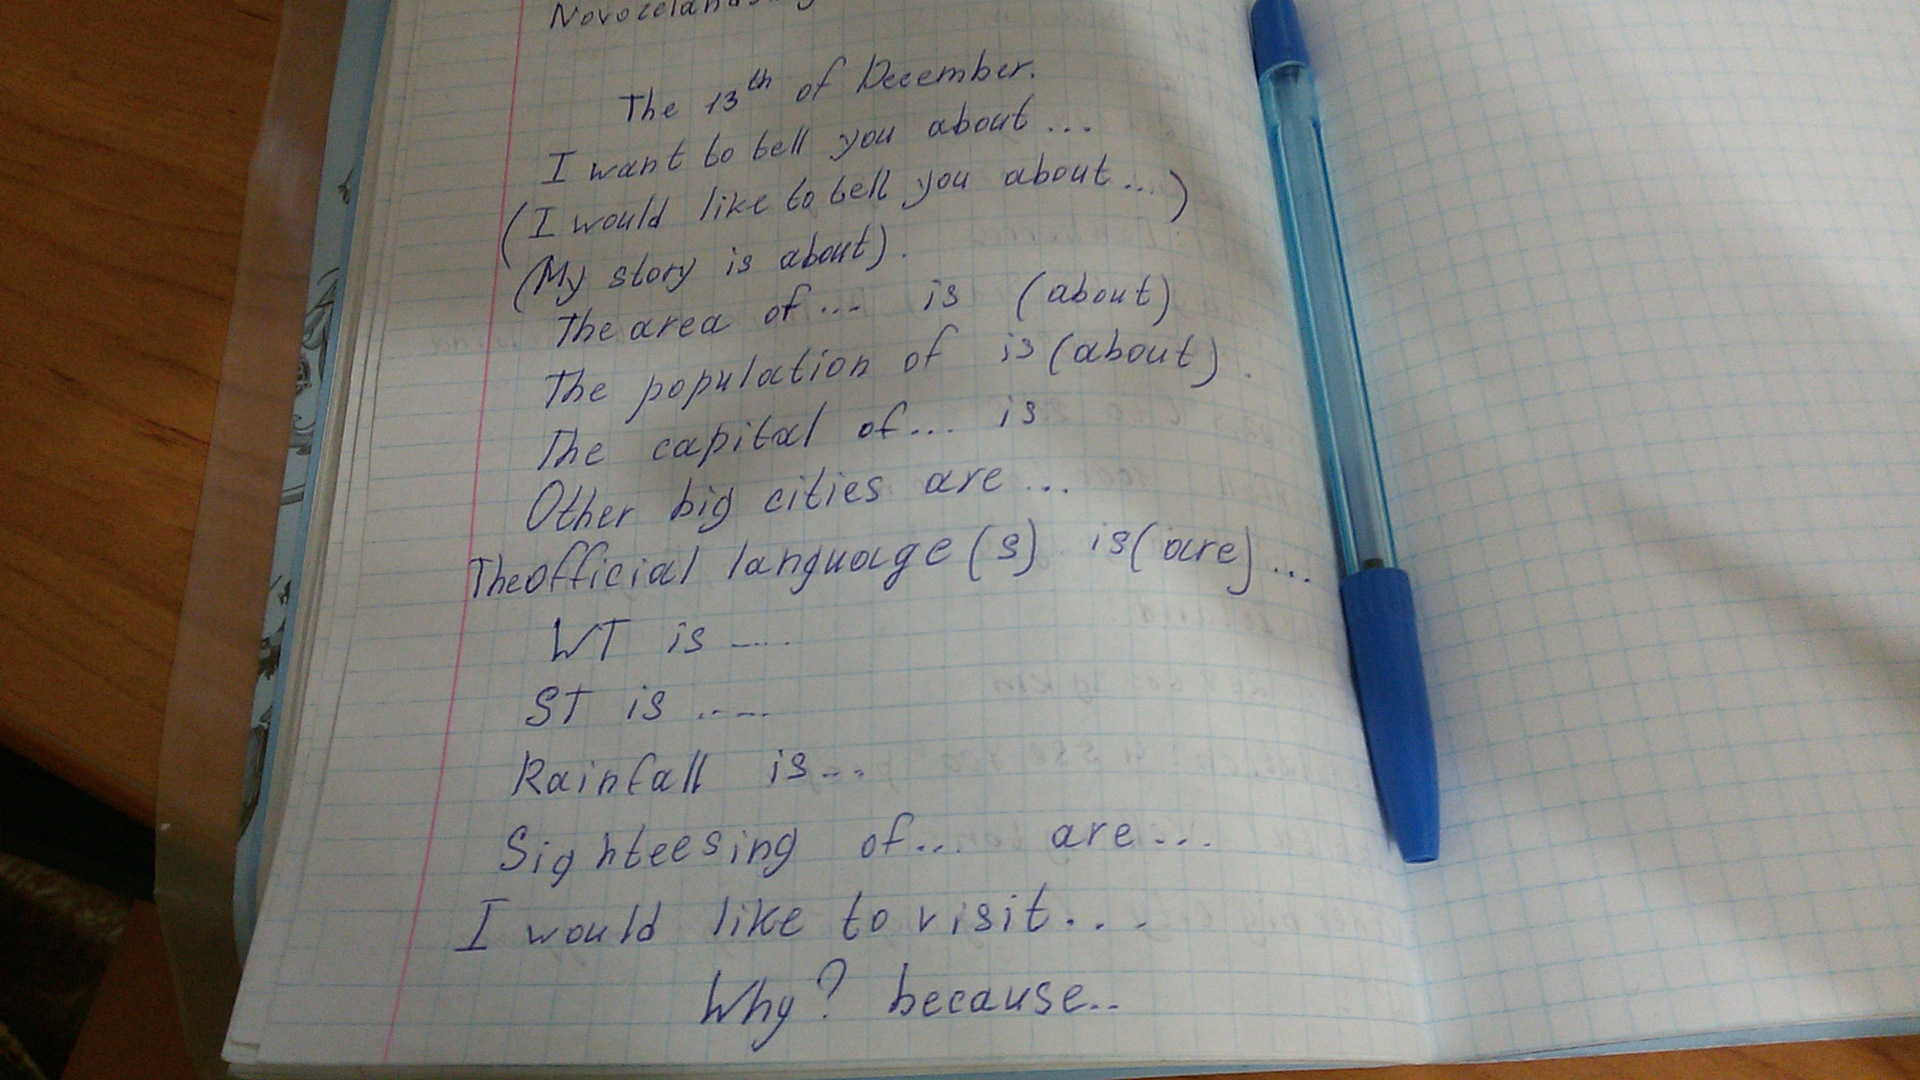 The 13th of December.
I want to tell you about ...
(I would like to tell you about ...)
(My story is about).
The area of ... is (about)
The population of is (about).
The capital of ... is
Other big cities are ...
The official language (s) is (are) ...
WT is ....
ST is .....
Rainfall is ...
Sighteesing of ... are ...
I would like to visit ...
Why? because ..